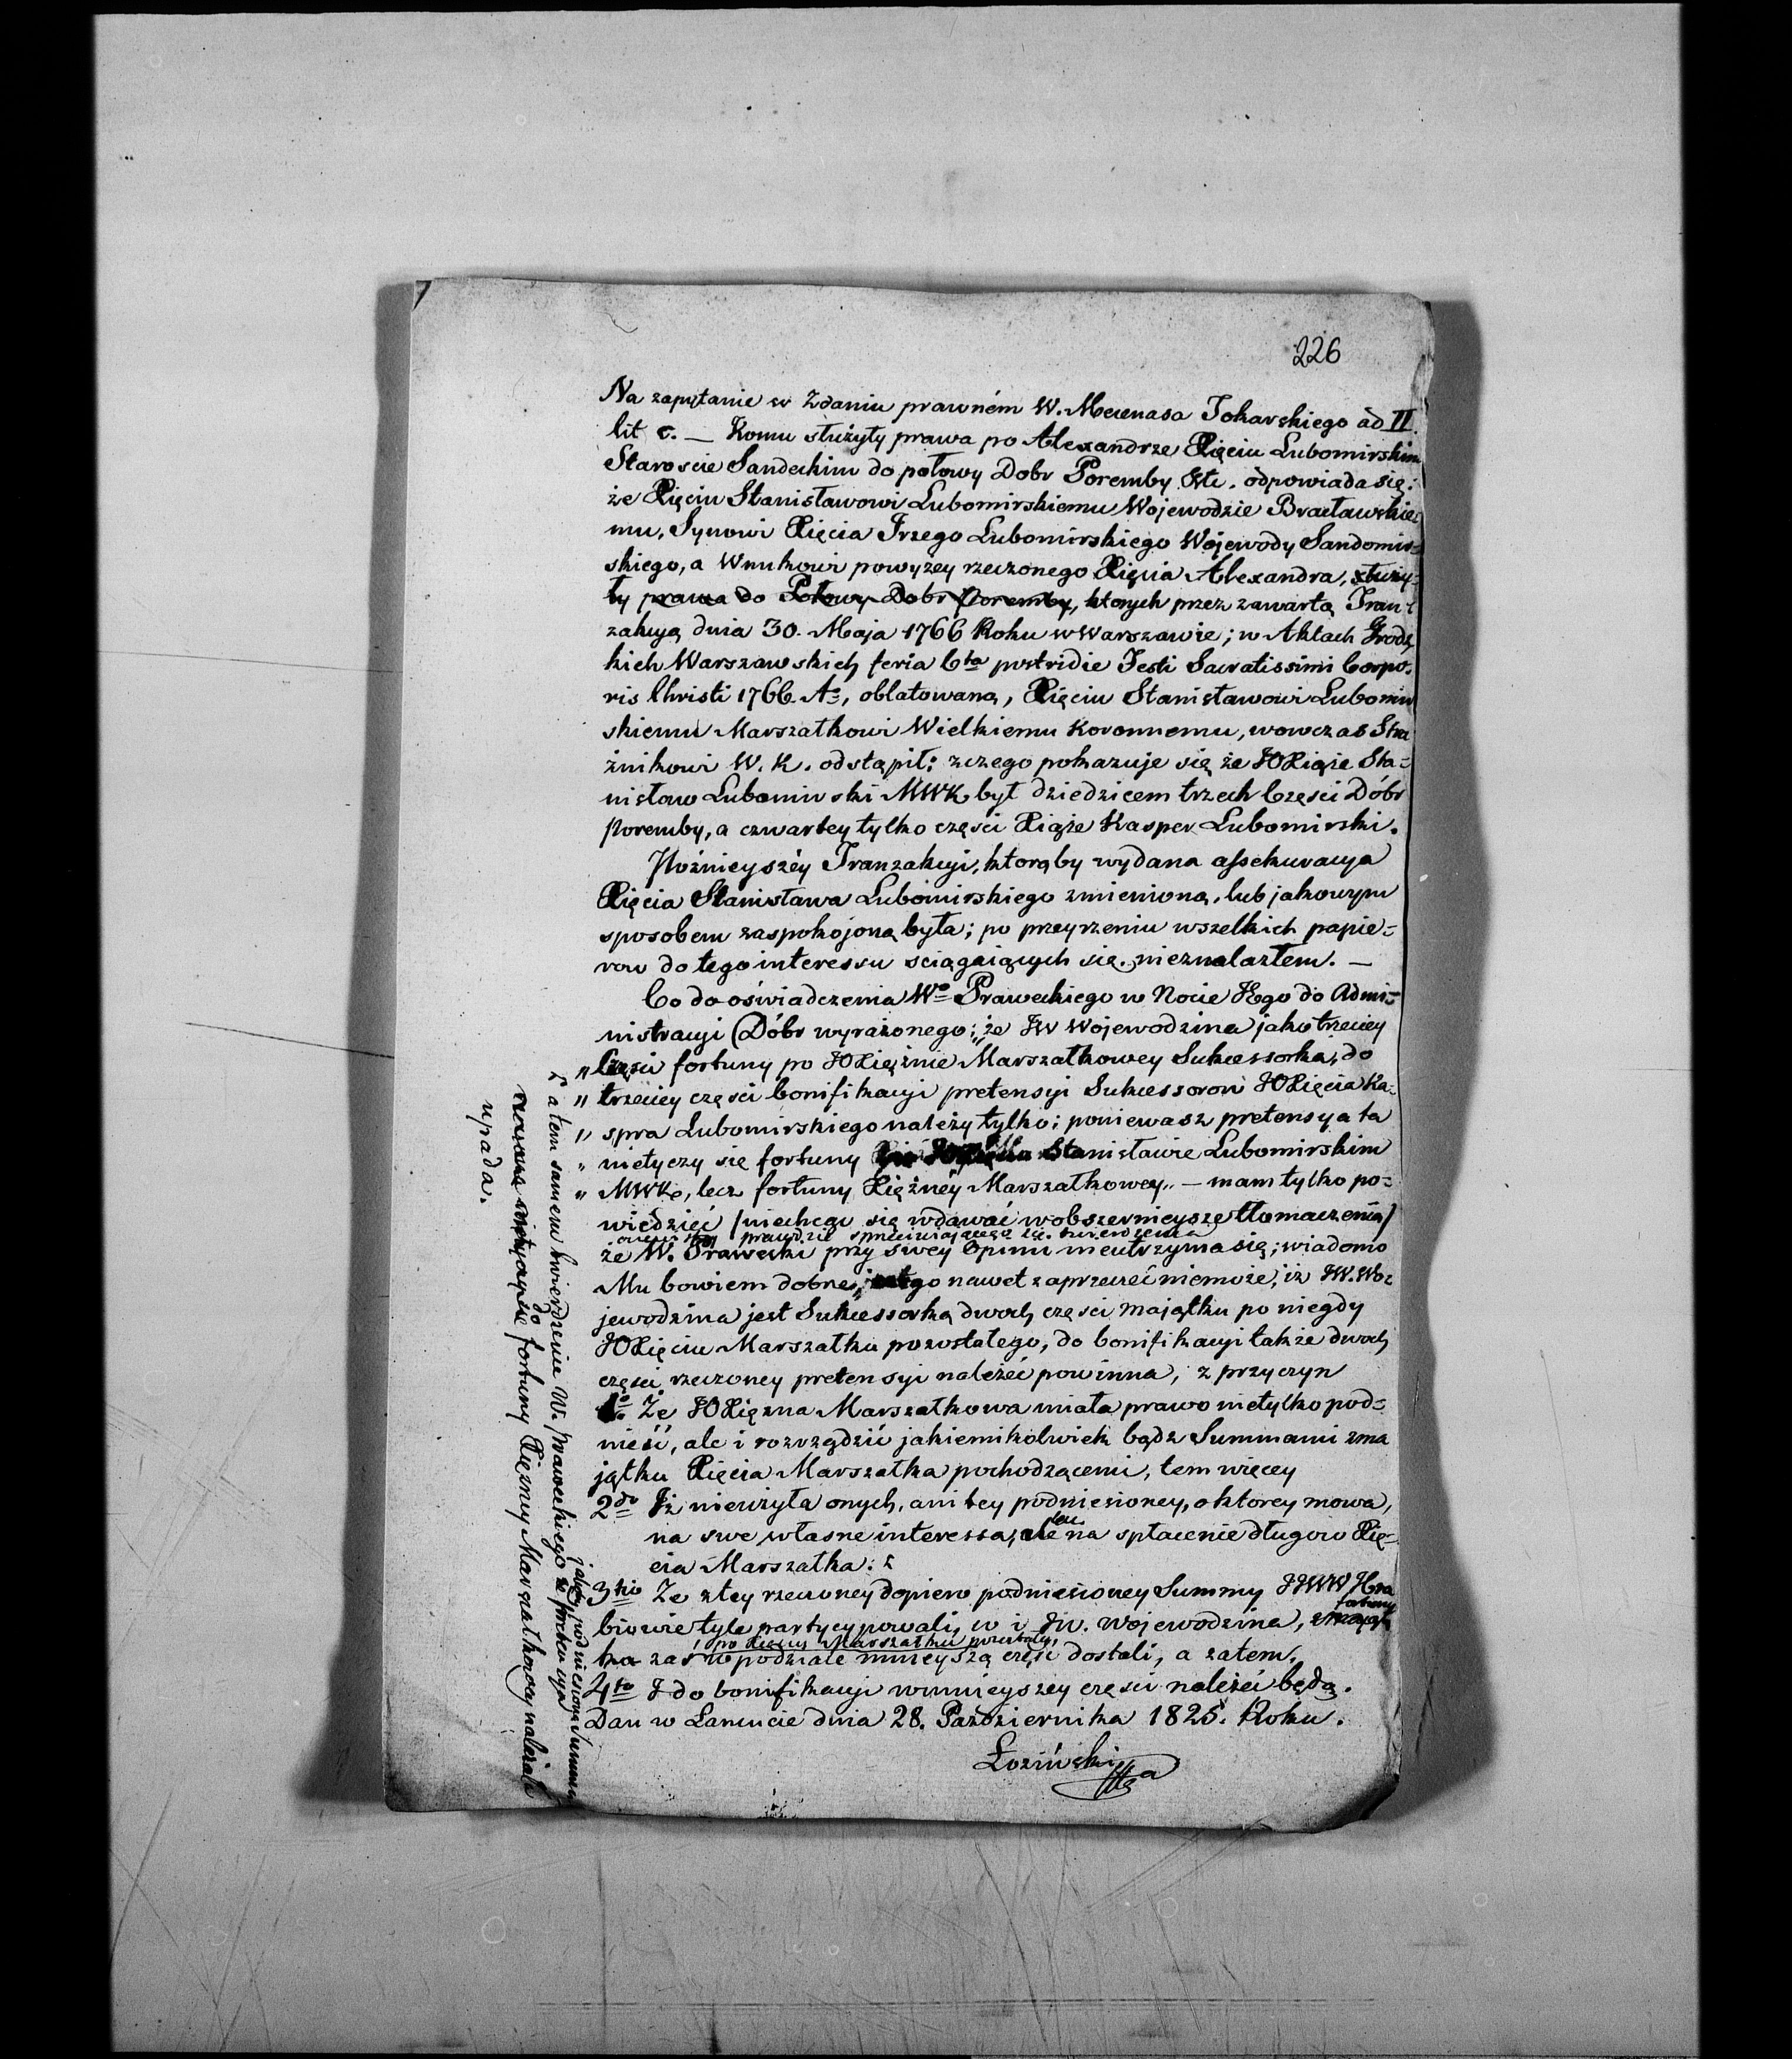 226
Na zapytanie w Zdaniu prawném W. Mecenasa Tokarskiego ad II.
lit c. — Komu służyły prawa po Alexandrze Xięciu Lubomirskim
Staroscie Sandeckim do połowy Dobr Poremby &tc. odpowiada się:
że Xięciu Stanisławowi Lubomirskiemu Wojewodzie Bracławskie-
mu, Synowi Xięcia Jrzego Lubomirskiego Wojewody Sandomir-
skiego, a Wnukowi powyżey rzeczonego Xięcia Alexandra, służy-
ły prawa do Połowy Dobr Poremby, ktorych przez zawartą Tran-
zakcyą dnia 30. Maja 1766 Roku w Warszawie; w Aktach Grodz
kich Warszawskich feria 6ta postridie Festi Sacratissimi Corpo-
ris Christi 1766. Ao, oblatowaną, Xięciu Stanisławowi Lubomir
skiemu Marszałkowi Wielkiemu Koronnemu, wowczas Stra
żnikowi W. K. odstąpił: zczego pokazuje się że JOXiąże Sta-
nisław Lubomirski MWK był dziedzicem trzech Części Dóbr
Poremby, a czwartey tylko części Xiąże Kasper Lubomirski.
Poźnieyszéy Tranzakcyi, ktorąby wydana assekuracya
Xięcia Stanisława Lubomirskiego zmieniona, lub jakowym
sposobem zaspokojoną była; po przeyrzeniu wszelkich papie-
row do tego interessu sciągaiących się. nieznalazłem. —
Co do oświadczenia Wo Praweckiego w Nocie Jego do Admi-
nistracyi Dóbr wyrażonego: „że JW Wojewodzina jako trzeciey
„ Części fortuny po JOXiężnie Marszałkowey Sukcessorka, do
„ trzeciey części bonifikacyi pretensyi Sukcessorow JOXięcia Ka-
„ spra Lubomirskiego należy tylko; poniewasz pretensya ta
„ nietyczy się fortuny Stanisławie Lubomirskim
„ MWK, lecz fortuny Xiężnéy Marszałkowey„ — mam tylko po-
wiedzieć /niechcąc się wdawać wobszernieysze tłomaczenia/
prawdzie sprzeciwiającego się twierdzenia
że W. Prawecki przy swey Opinii nieutrzyma się; wiadomo
Mu bowiem dobrze, tego nawet zaprzeczeć niemoże, iż JW. Wo-
jewodzina jest Sukcessorką dwoch części majątku po niegdy
JOXięciu Marszałku pozostałego, do bonifikacyi także dwoch
części rzeczoney pretensyi należeć powinna, z przyczyn
1o Że JOXiężna Marszałkowa miała prawo nietylko pod-
nieść, ale i rozrządzić jakiemikolwiek bądz Summami zma
jątku Xięcia Marszałka pochodzącemi, tem więcey
2do Iż nieużyła onych, ani tey podniesioney, o ktorey mowa,
na swe własne interessa, ale lecz na spłacenie długow Xię-
cia Marszałka:
3tio Ze ztey rzeczoney dopiero podniesioney Summy JJWW Hra
biowie tyle partycypowali, co i JW. Wojewodzina, z mająt
fortuny
ku zaś w podziale mnieyszą część dostali, a zatem.
po Xięciu Marszałku pozostałey,
4to I do bonifikacyi wmnieyszey części należeć będą.
Dan w Łancucie dnia 28. Pazdziernika 1825. Roku.
Łoziński
a tem samem twierdzenie W. Praweckiego
jakoby podniesiona Summa
do fortuny Xiężny Marszałkowey należała
upada.